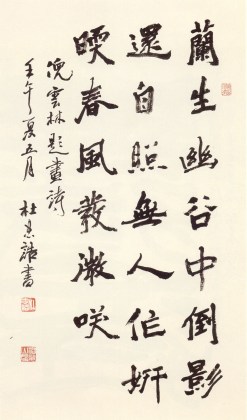 蘭生幽谷中倒影
還自照無人作妍
暖春風發微咲
倪雲林題畫詩
壬午夏五月 杜忠誥書